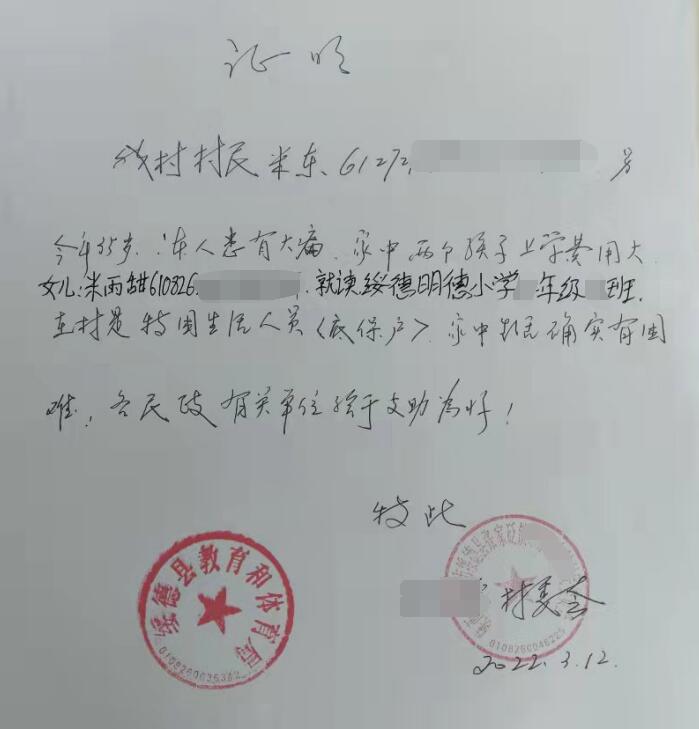 证明
我村村民米东、61272 号
今年35岁.本人患有大病.家中两个孩子上学费用大.
女儿:米雨甜610826. .就读绥德明德小学 年级 班.
在村是特困生活人员〈底保户〉.家中 确实有困
难,各民政有关单位给于支助为好!
特此
村委会
2022.3.12.
绥德县教育和体育局
绥德县张家砭
0108260046225